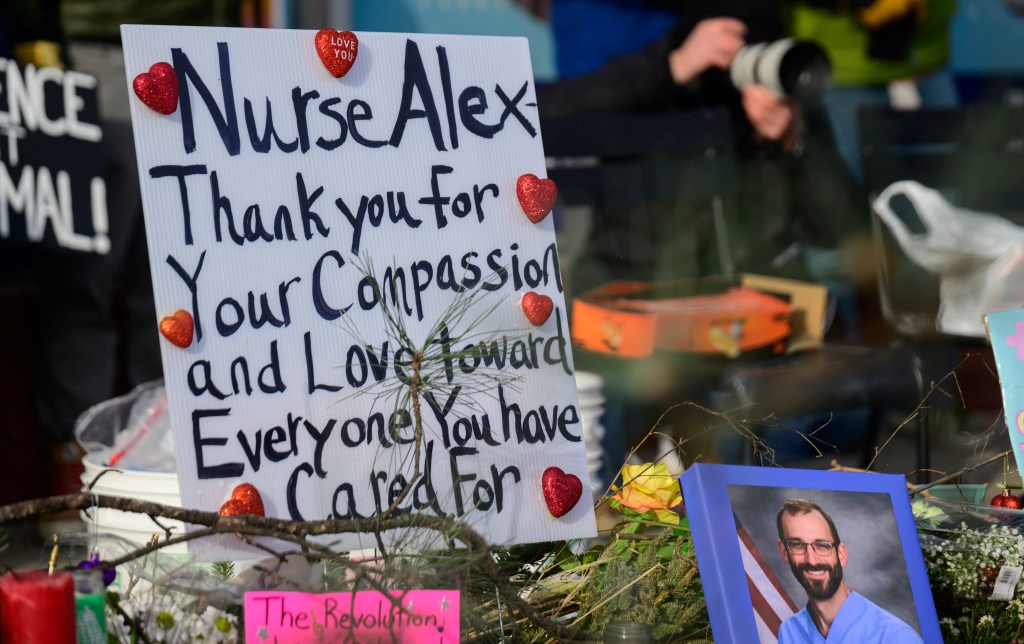 LOVE
YOU
Nurse Alex-
Thank you for
Your Compassion
and Love toward
Everyone You have
Cared For
ENCE
T
MAL!
The Revolution